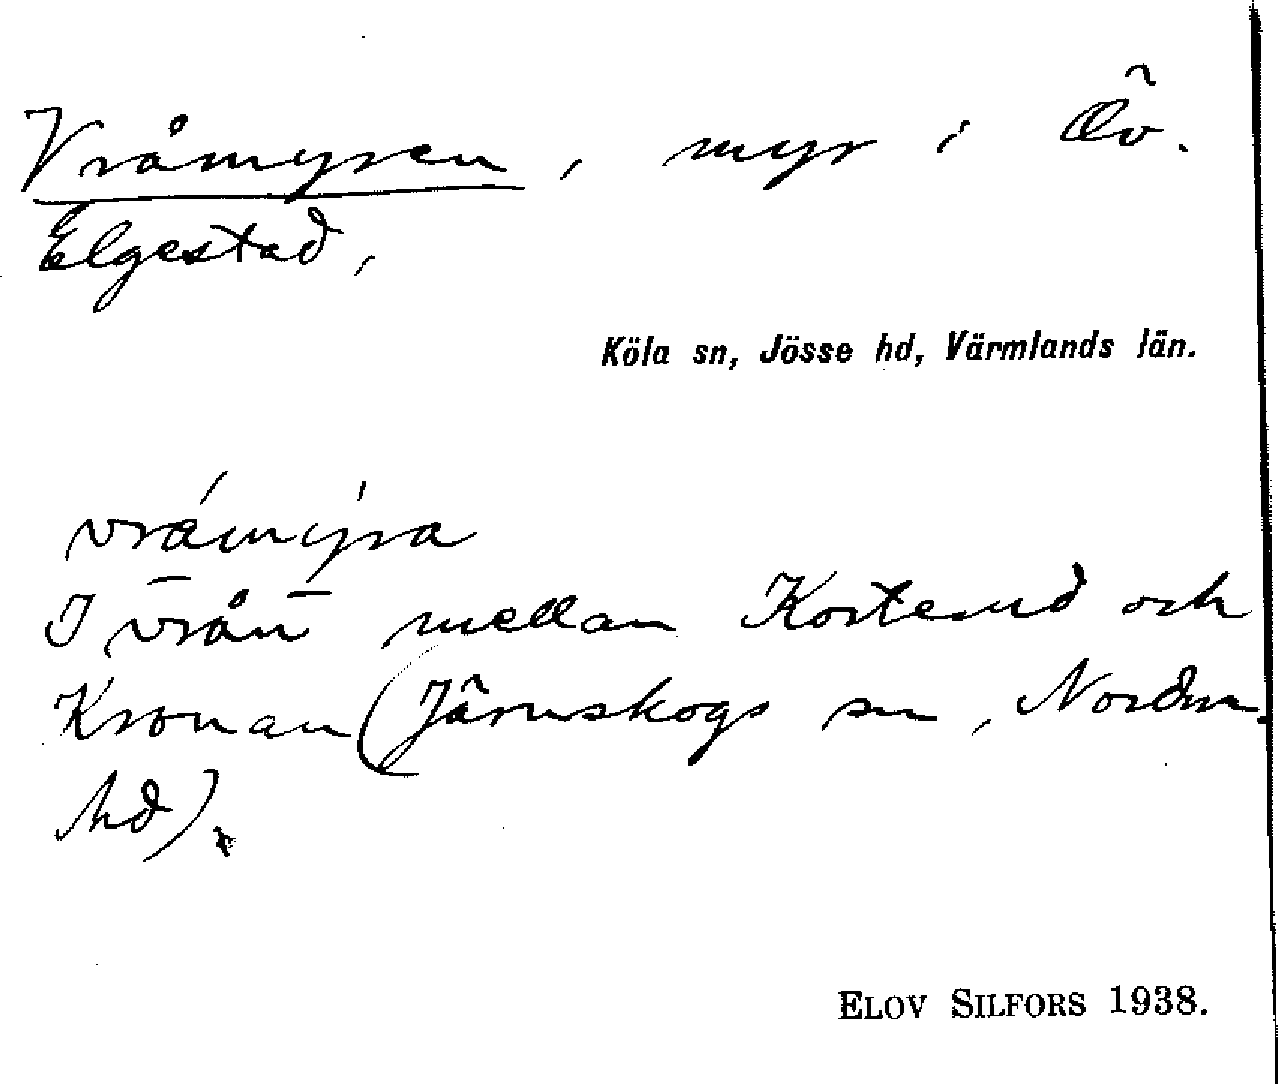 Vråmyren, myr i Öv.
Elgestad,
Köla sn, Jösse hd, Värmlands län.
vrámýra
I vrån mellan Kortesud och
Kronan (Järnskogs sn, Nordm.
hd).
ELOV SILFORS 1938.